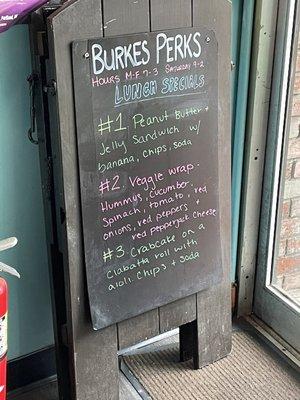 BURKES PERKS
HOURS M-F 7-3 SATURDAY 9-2
LUNCH SPECIALS
#1. Peanut Butter +
Jelly Sandwich w/
banana, chips, soda
#2. Veggie wrap.
Hummus, cucumber,
Spinach, tomato, red
onions, red peppers +
red pepperjack cheese
#3. Crabcake on a
Ciabatta roll with
aioli. Chips + Soda